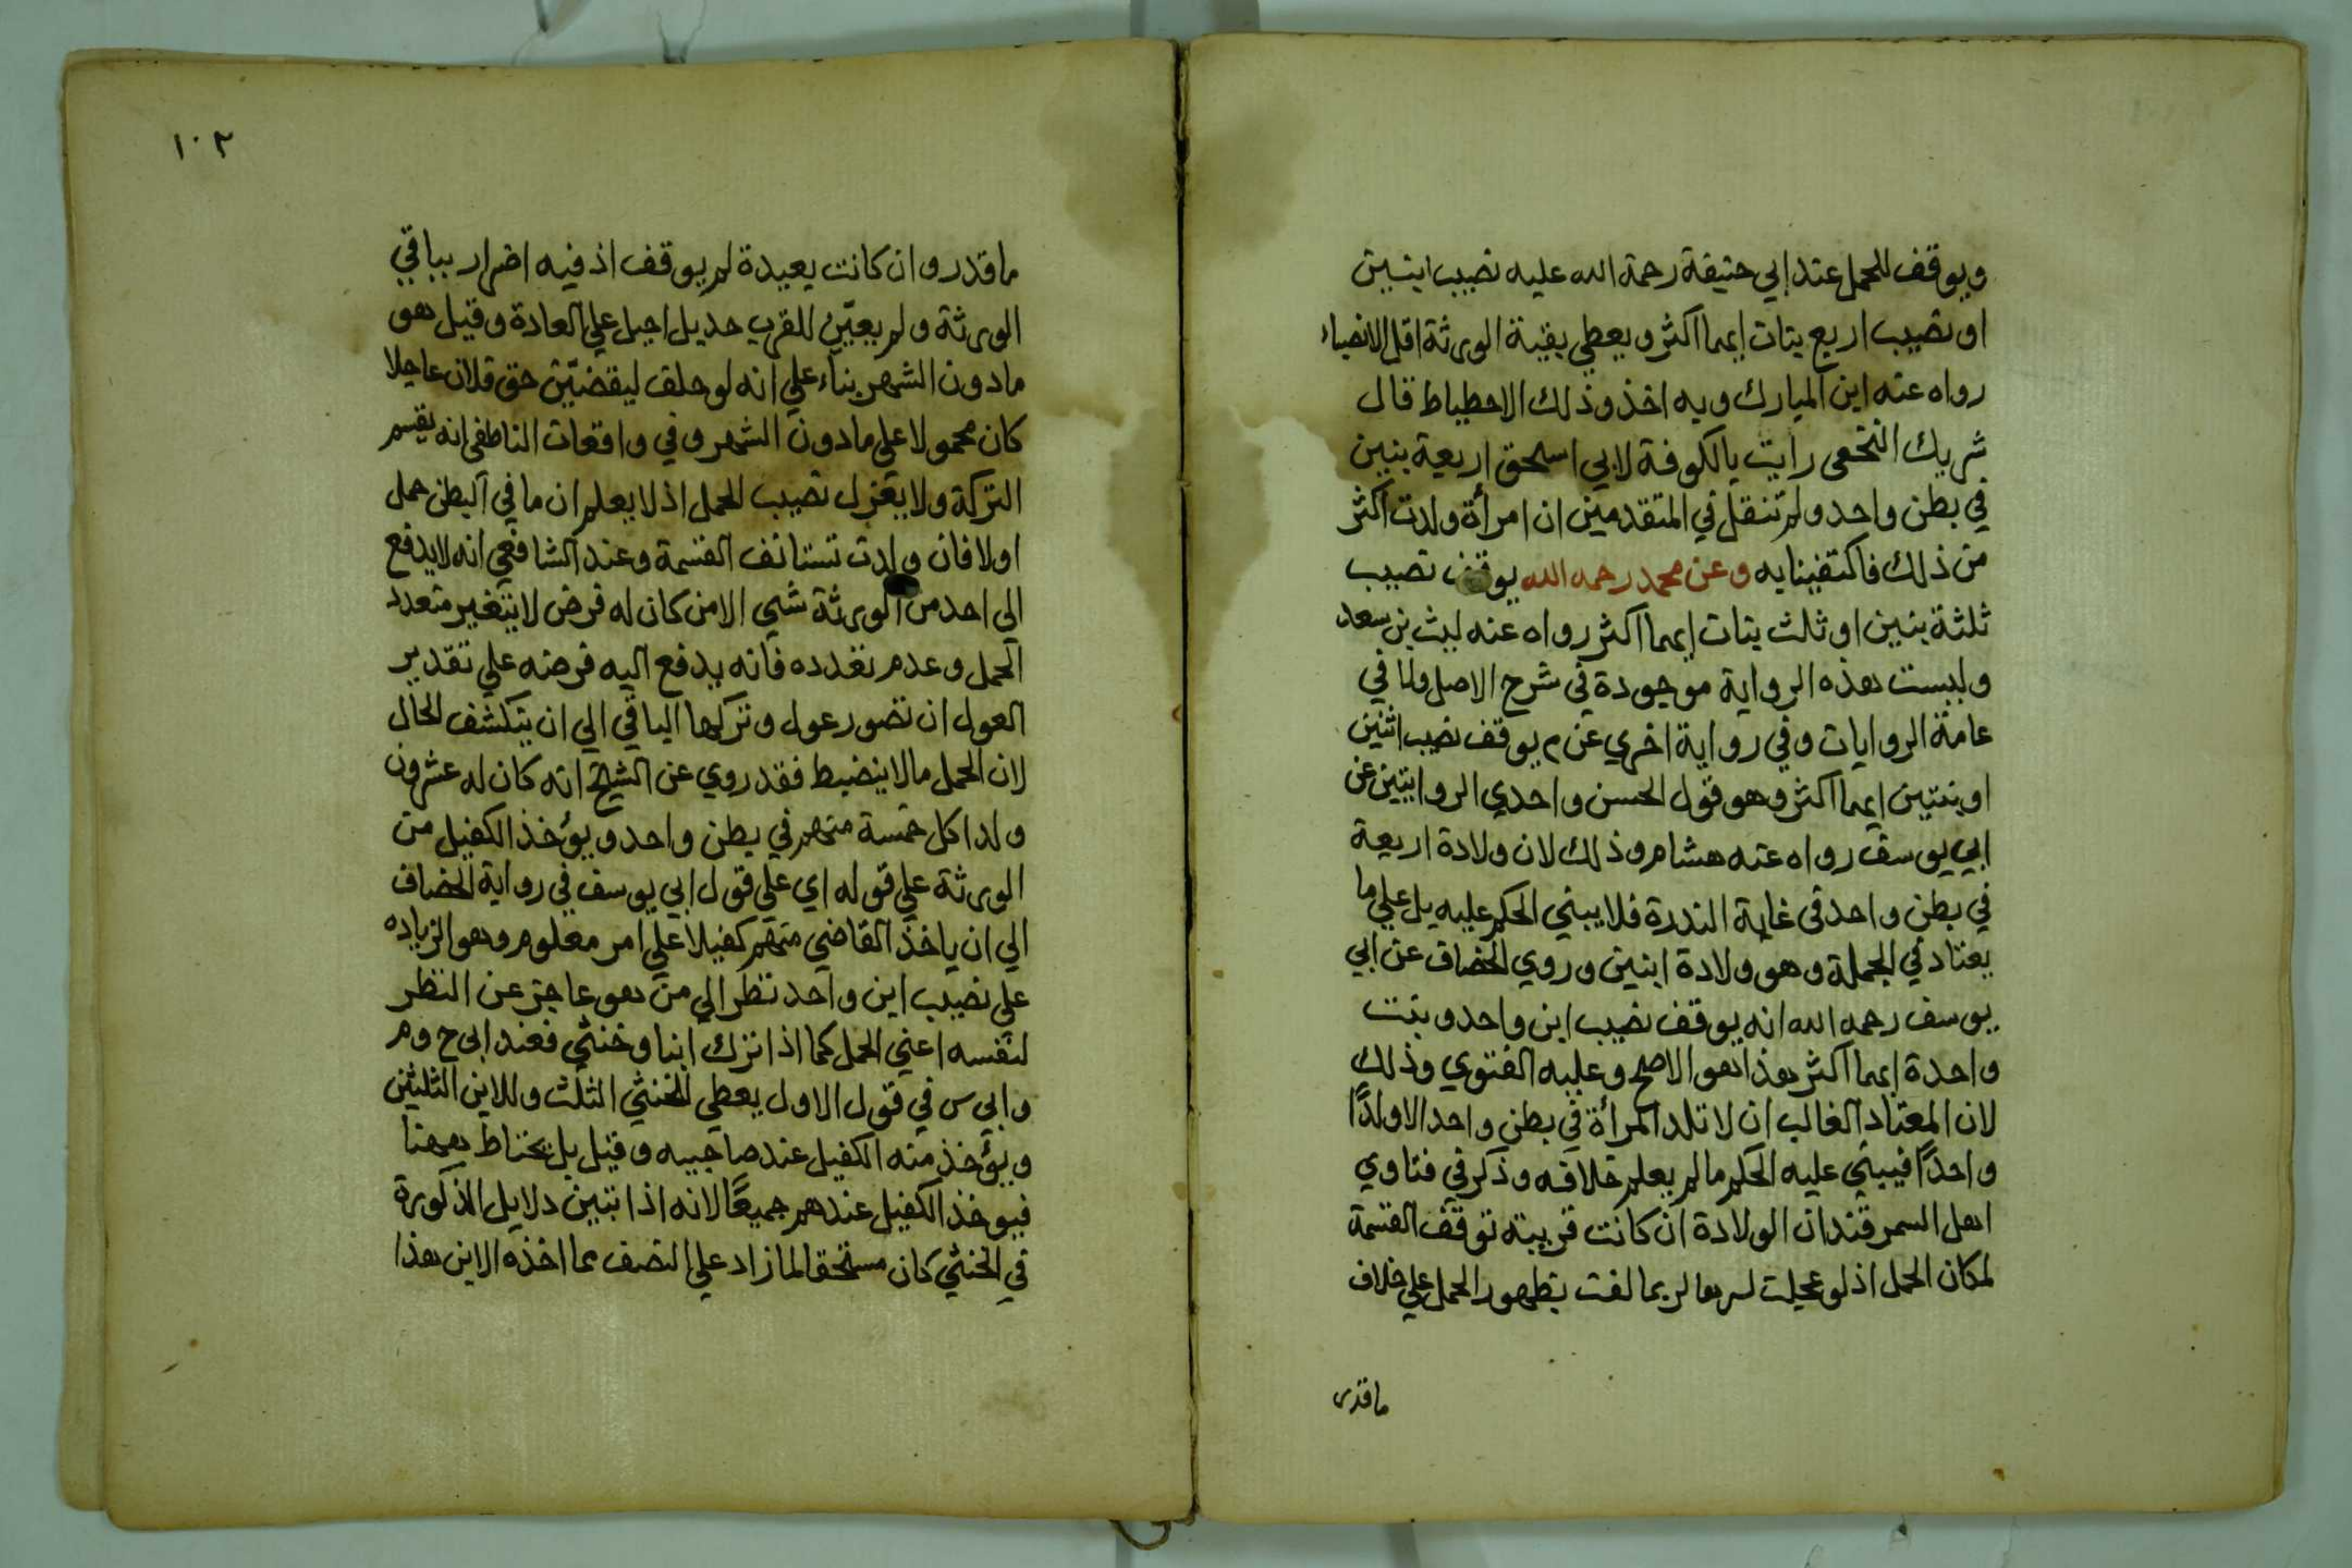 ويوقف للحمل عند ابي حنيفة رحمة الله عليه نصيب ابنين
او نصيب اربع بنات ايهما اكثر ويعطي بقية الورثة اقل الانصباء
رواه عنه ابن المبارك وبه اخذ وذلك الاحطياط قال
شريك النخعى رايت بالكوفة لابي اسحق اربعة بنين
في بطن واحد ولم تنقل في المتقدمين ان امرأة ولدت اكثر
من ذلك فاكتفينا به وعن محمد رحمه الله يوقف نصيب
ثلثة بنين او ثلث بنات ايهما اكثر رواه عنه ليث بن سعد
وليست هذه الرواية موجودة في شرح الاصل ولا في
عامة الروايات وفي رواية اخري عن م يوقف نصيب اثنين
او بنتين ايهما اكثر وهو قول الحسن واحدي الروايتين عن
ابي يوسف رواه عنه هشام وذلك لان ولادة اربعة
في بطن واحد فى غاية الندرة فلا يبني الحكم عليه بل علي ما
يعتاد في الجملة وهو ولادة ابنين وروي الخصاف عن ابي
يوسف رحمه الله انه يوقف نصيب ابن واحد وبنت
واحدة ايهما اكثر هذا هو الاصح وعليه الفتوي وذلك
لان المعتاد الغالب ان لا تلد المرأة في بطن واحد الا ولدًا
واحدًا فيبني عليه الحكم ما لم يعلم خلافه وذكر في فتاوي
اهل السمرقند ان الولادة ان كانت قريبة توقف القسمة
لمكان الحمل اذ لو عجلت لربما لغت بظهور الحمل علي خلاف
ماقدر
١٠٢
ما قدر وان كانت بعيدة لم يوقف اذ فيه اضرار بباقي
الورثة ولم يعيّن للقرب حد بل احيل علي العادة وقيل هو
ما دون الشهر بناء علي انه لو حلف ليقضيّن حق فلان عاجلا
كان محمولا علي ما دون الشهر وفي واقعات الناطفى انه يقسم
التركة ولا يعزل نصيب الحمل اذ لا يعلم ان ما في البطن حمل
او لا فان ولدت تستانف القسمة وعند الشافعي انه لا يدفع
الي احد من الورثة شي الا من كان له فرض لا يتغير بتعدد
الحمل وعدم تعدده فانه يدفع اليه فرضه علي تقدير
العول ان تصور عول وتركها الباقي الي ان ينكشف الحال
لان الحمل مالا ينضبط فقد روي عن الشيخ انه كان له عشرون
ولدا كل خمسة منهم في بطن واحد ويؤخذ الكفيل من
الورثة علي قوله اي علي قول ابي يوسف في رواية الخصاف
الي ان ياخذ القاضي منهم كفيلا علي امر معلوم وهو الزياده
علي نصيب ابن واحد نظرا الي من هو عاجز عن النظر
لنفسه اعني الحمل كما اذا ترك ابنا وخنثي فعند ابى ح وم
وابي س في قول الاول يعطي للخنثي الثلث وللابن الثلثين
ويؤخذ منه الكفيل عند صاحبيه وقيل بل يحتاط ههنا
فيوخذ الكفيل عندهم جميعًا لانه اذا تبين دلايل الذكورة
في الخنثي كان مستحقا لما زاد علي النصف مما اخذه الابن هذا